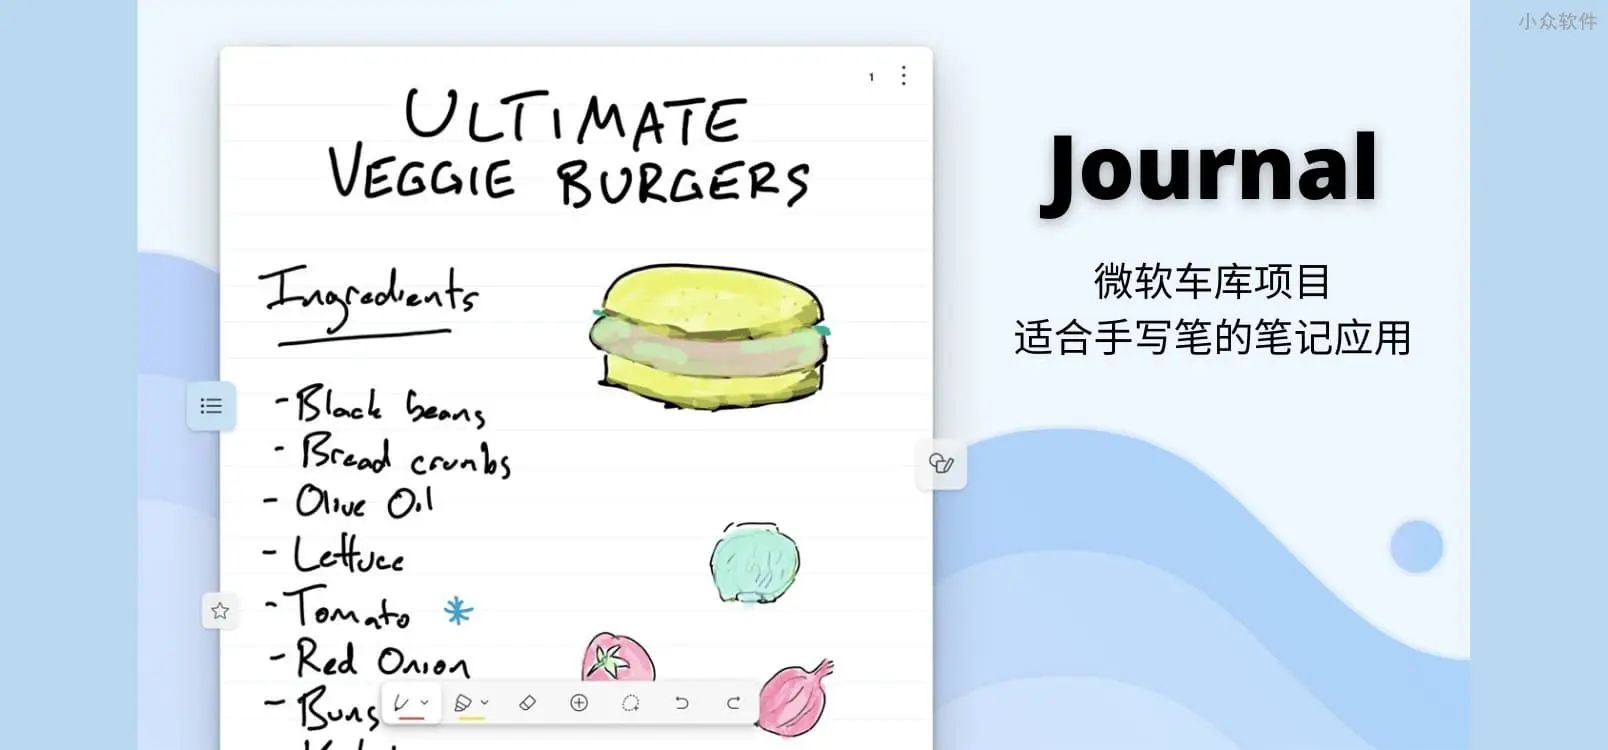 小众软件
1
ULTIMATE
VEGGIE BURGERS
Ingredients
- Black beans
- Bread crumbs
- Olive Oil
- Lettuce
- Tomato *
- Red Onion
- Buns
Journal
微软车库项目
适合手写笔的笔记应用